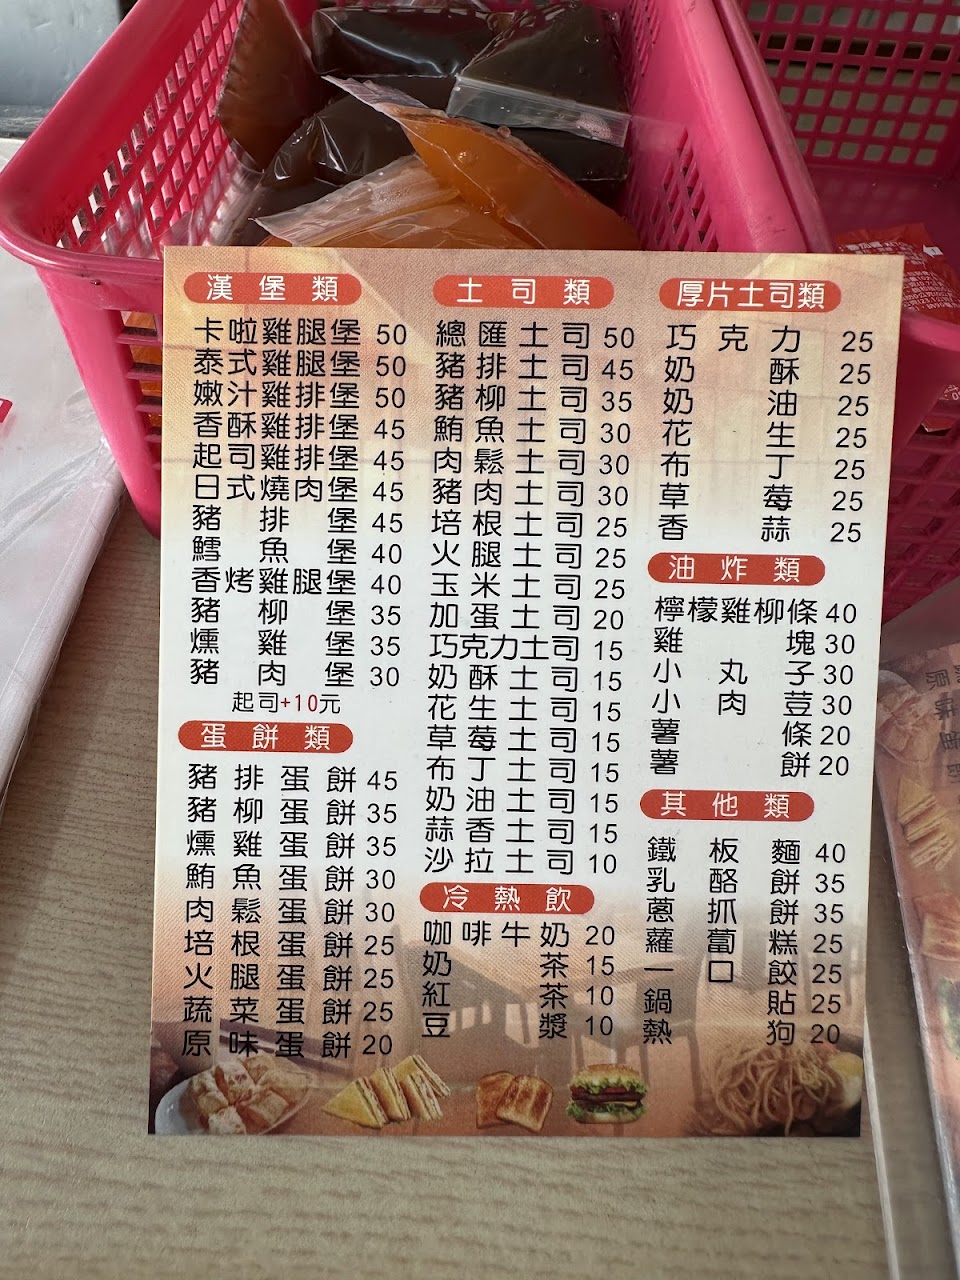 漢堡類
卡啦雞腿堡 50
泰式雞腿堡 50
嫩汁雞排堡 50
香酥雞排堡 45
起司雞排堡 45
日式燒肉堡 45
豬排堡 45
鱈魚堡 40
香烤雞腿堡 40
豬柳堡 35
燻雞堡 35
豬肉堡 30
起司+10元
蛋餅類
豬排蛋餅 45
豬柳蛋餅 35
燻雞蛋餅 35
鮪魚蛋餅 30
肉鬆蛋餅 30
培根蛋餅 25
火腿蛋餅 25
蔬菜蛋餅 25
原味蛋餅 20
土司類
總匯土司 50
豬排土司 45
豬柳土司 35
鮪魚土司 30
肉鬆土司 30
豬肉土司 30
培根土司 25
火腿土司 25
玉米土司 25
加蛋土司 20
巧克力土司 15
奶酥土司 15
花生土司 15
草莓土司 15
布丁土司 15
奶油土司 15
蒜香土司 15
沙拉土司 10
冷熱飲
咖啡牛奶 20
奶茶 15
紅茶 10
豆漿 10
厚片土司類
巧克力 25
奶酥 25
奶油 25
花生 25
布丁 25
草莓 25
香蒜 25
油炸類
檸檬雞柳條 40
雞塊 30
小丸子 30
小肉荳 30
薯條 20
薯餅 20
其他類
鐵板麵 40
乳酪餅 35
蔥抓餅 35
蘿蔔糕 25
一口餃 25
鍋貼 25
熱狗 20